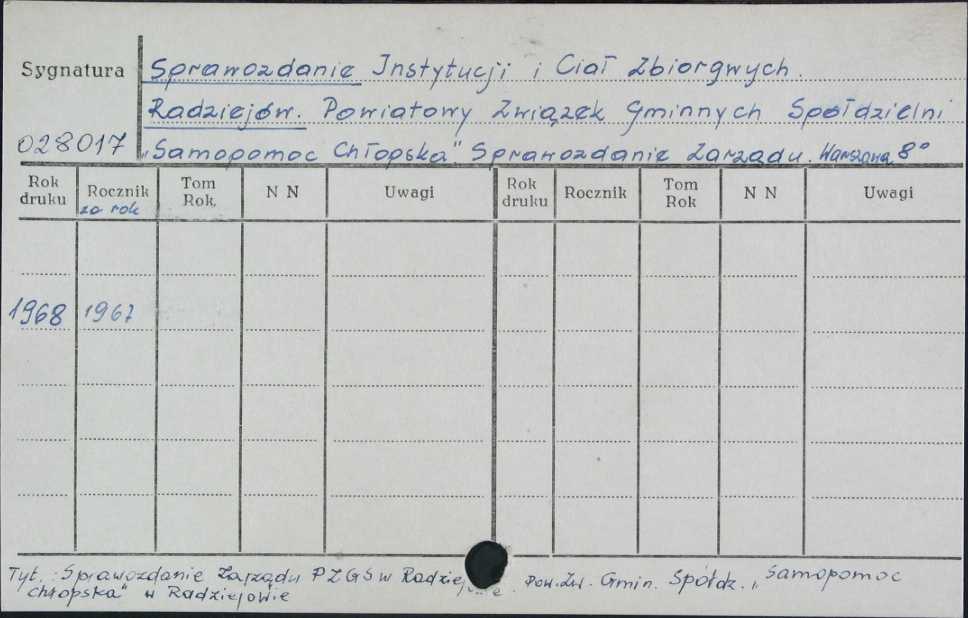 Sygnatura
028017
Sprawozdanie Instytucji i Ciał Zbiorowych.
Radziejów. Powiatowy Związek Gminnych Spółdzielni
„Samopomoc Chłopska" Sprawozdanie Zarządu. Warszawa 8°
Rok druku Rocznik za rok Tom Rok N N Uwagi Rok druku Rocznik Tom Rok N N Uwagi
1968 1967
Tyt.: Sprawozdanie Zarządu PZGS w Pow. Zw. Gmin. Spółdz. „Samopomoc
Chłopska" w Radziejowie